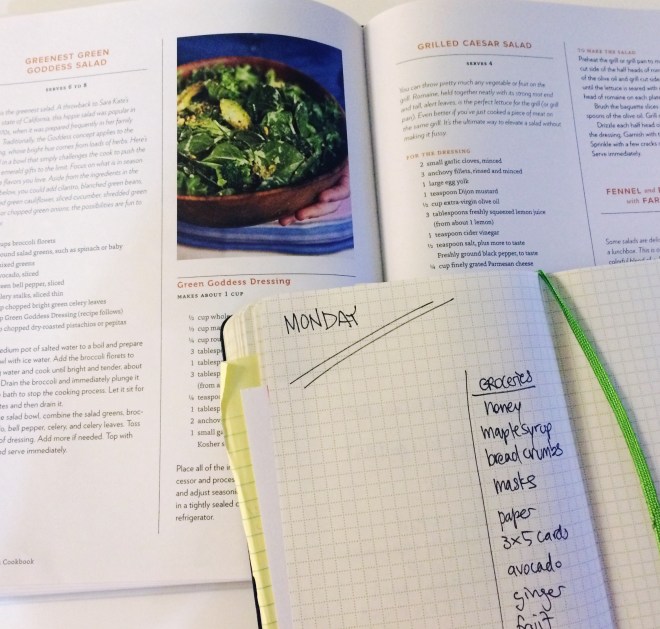 GREENEST GREEN
GODDESS SALAD
SERVES 6 TO 8
is the greenest salad. A throwback to Sara Kate's
state of California, this hippie salad was popular in
when it was prepared frequently in her family.
Traditionally, the Goddess concept applies to the
bright hue comes from loads of herbs. Here's
in a bowl that simply challenges the cook to push the
emerald gifts to the limit. Focus on what is in season
flavors you love. Aside from the ingredients in the
below, you could add cilantro, blanched green beans,
green cauliflower, sliced cucumber, shredded green
or chopped green onions; the possibilities are fun to
cups broccoli florets
salad greens, such as spinach or baby
mixed greens
avocado, sliced
green bell pepper, sliced
celery stalks, sliced thin
chopped bright green celery leaves
Green Goddess Dressing (recipe follows)
chopped dry-roasted pistachios or pepitas
medium pot of salted water to a boil and prepare
bowl with ice water. Add the broccoli florets to
water and cook until bright and tender, about
Drain the broccoli and immediately plunge it
bath to stop the cooking process. Let it sit for
and then drain it.
salad bowl, combine the salad greens, broc-
bell pepper, celery, and celery leaves. Toss
of dressing. Add more if needed. Top with
and serve immediately.
Cookbook
Green Goddess Dressing
MAKES ABOUT 1 CUP
½ cup whole
½ cup ma
¼ cup
3
1
3
(from a
½ teaspo
1 tablesp
2 anchov
1 small
Kosher
Place all of the
cessor and proces
and adjust season
in a tightly sealed
refrigerator.
GRILLED CAESAR SALAD
SERVES 4
You can throw pretty much any vegetable or fruit on the
grill. Romaine, held together neatly with its strong root end
and tall, alert leaves, is the perfect lettuce for the grill (or grill
pan). Even better if you've just cooked a piece of meat on
the same grill. It's the ultimate way to elevate a salad without
making it fussy.
FOR THE DRESSING
2 small garlic cloves, minced
3 anchovy fillets, rinsed and minced
1 large egg yolk
1 teaspoon Dijon mustard
½ cup extra-virgin olive oil
3 tablespoons freshly squeezed lemon juice
(from about 1 lemon)
1 teaspoon cider vinegar
½ teaspoon salt, plus more to taste
Freshly ground black pepper, to taste
¼ cup finely grated Parmesan cheese
TO MAKE THE SALAD
Preheat the grill or grill pan to m
cut side of the half heads of rom
of the olive oil and grill cut side
until the lettuce is seared with
head of romaine on each plate
Brush the baguette slices
spoons of the olive oil. Grill
Drizzle each half head
the dressing. Garnish with
Sprinkle with a few cracks
Serve immediately.
FENNEL and
with FAR
Some salads are deli
a lunchbox. This is
MONDAY
GROCERIES
honey
maple syrup
bread crumbs
masks
paper
3x5 cards
avocado
ginger
fruit